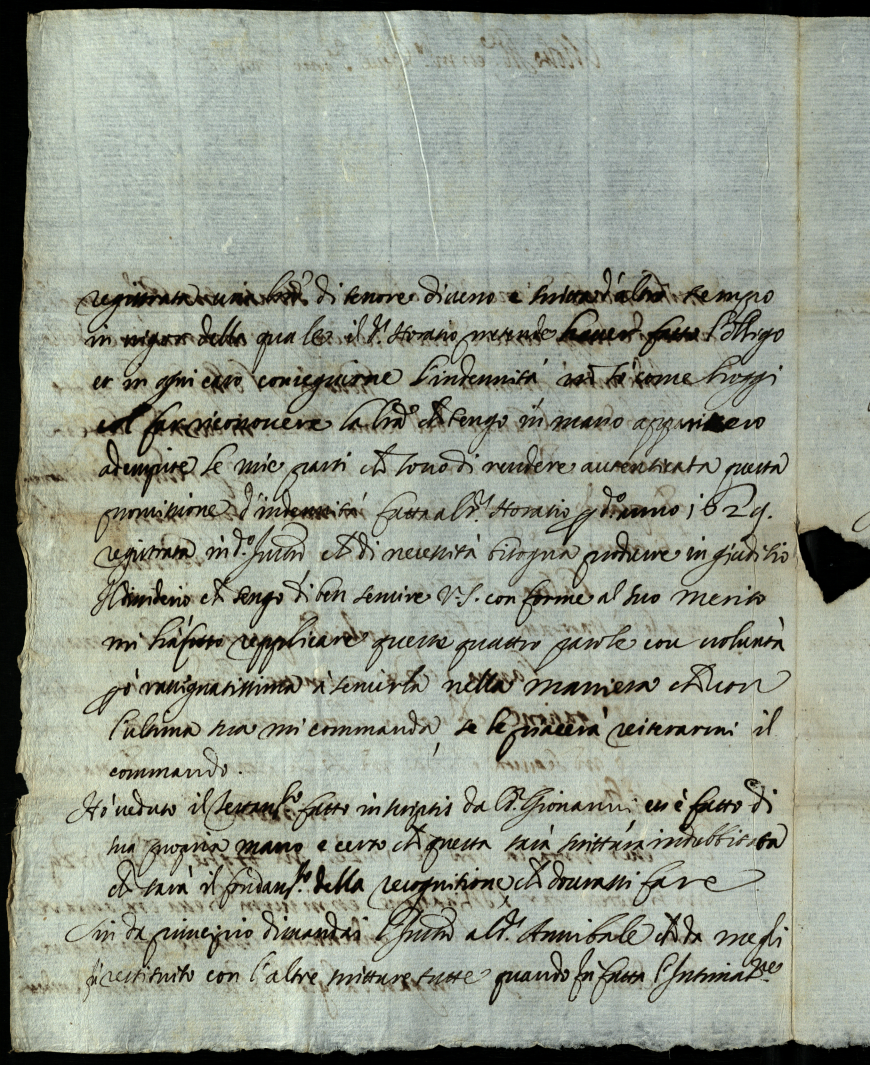 registrata una lra di tenore diverso e scritta d'altro tempo
in vigor della quale il S.r Horatio pretende haver fatto l'obligo
et in ogni caso conseguirne l'indennità come hoggi
col far riconoscere la lra ch'tengo in mano
adempite le mie parti ch' sono di rendere autenticata questa
promissione d'indennità fatta al S.r Horatio anno 1629.
registrata in d.o ch' di necessità bisogna produrre in giuditio
Il desiderio ch' tengo di ben servire V.S. conforme al suo merito
mi hà fatto repplicare queste quattro parole con voluntà
però rassignatissima à servirla nella maniera ch' con
l'ultima sua mi commanda, se le piacerà reiterarmi il
commando.
Hò veduto il fatto in scriptis da S.r Giovanni et è fatto di
sua propria mano e certo ch' questa sarà scrittura indubbitata
ch' sarà il fondam.to della recognitione ch' dovrassi fare
Sin da principio dimandai al S.r Annibale ch' da me gli
fù restituito con l'altre scritture tutte quando fù fatta l'Intimat.ne